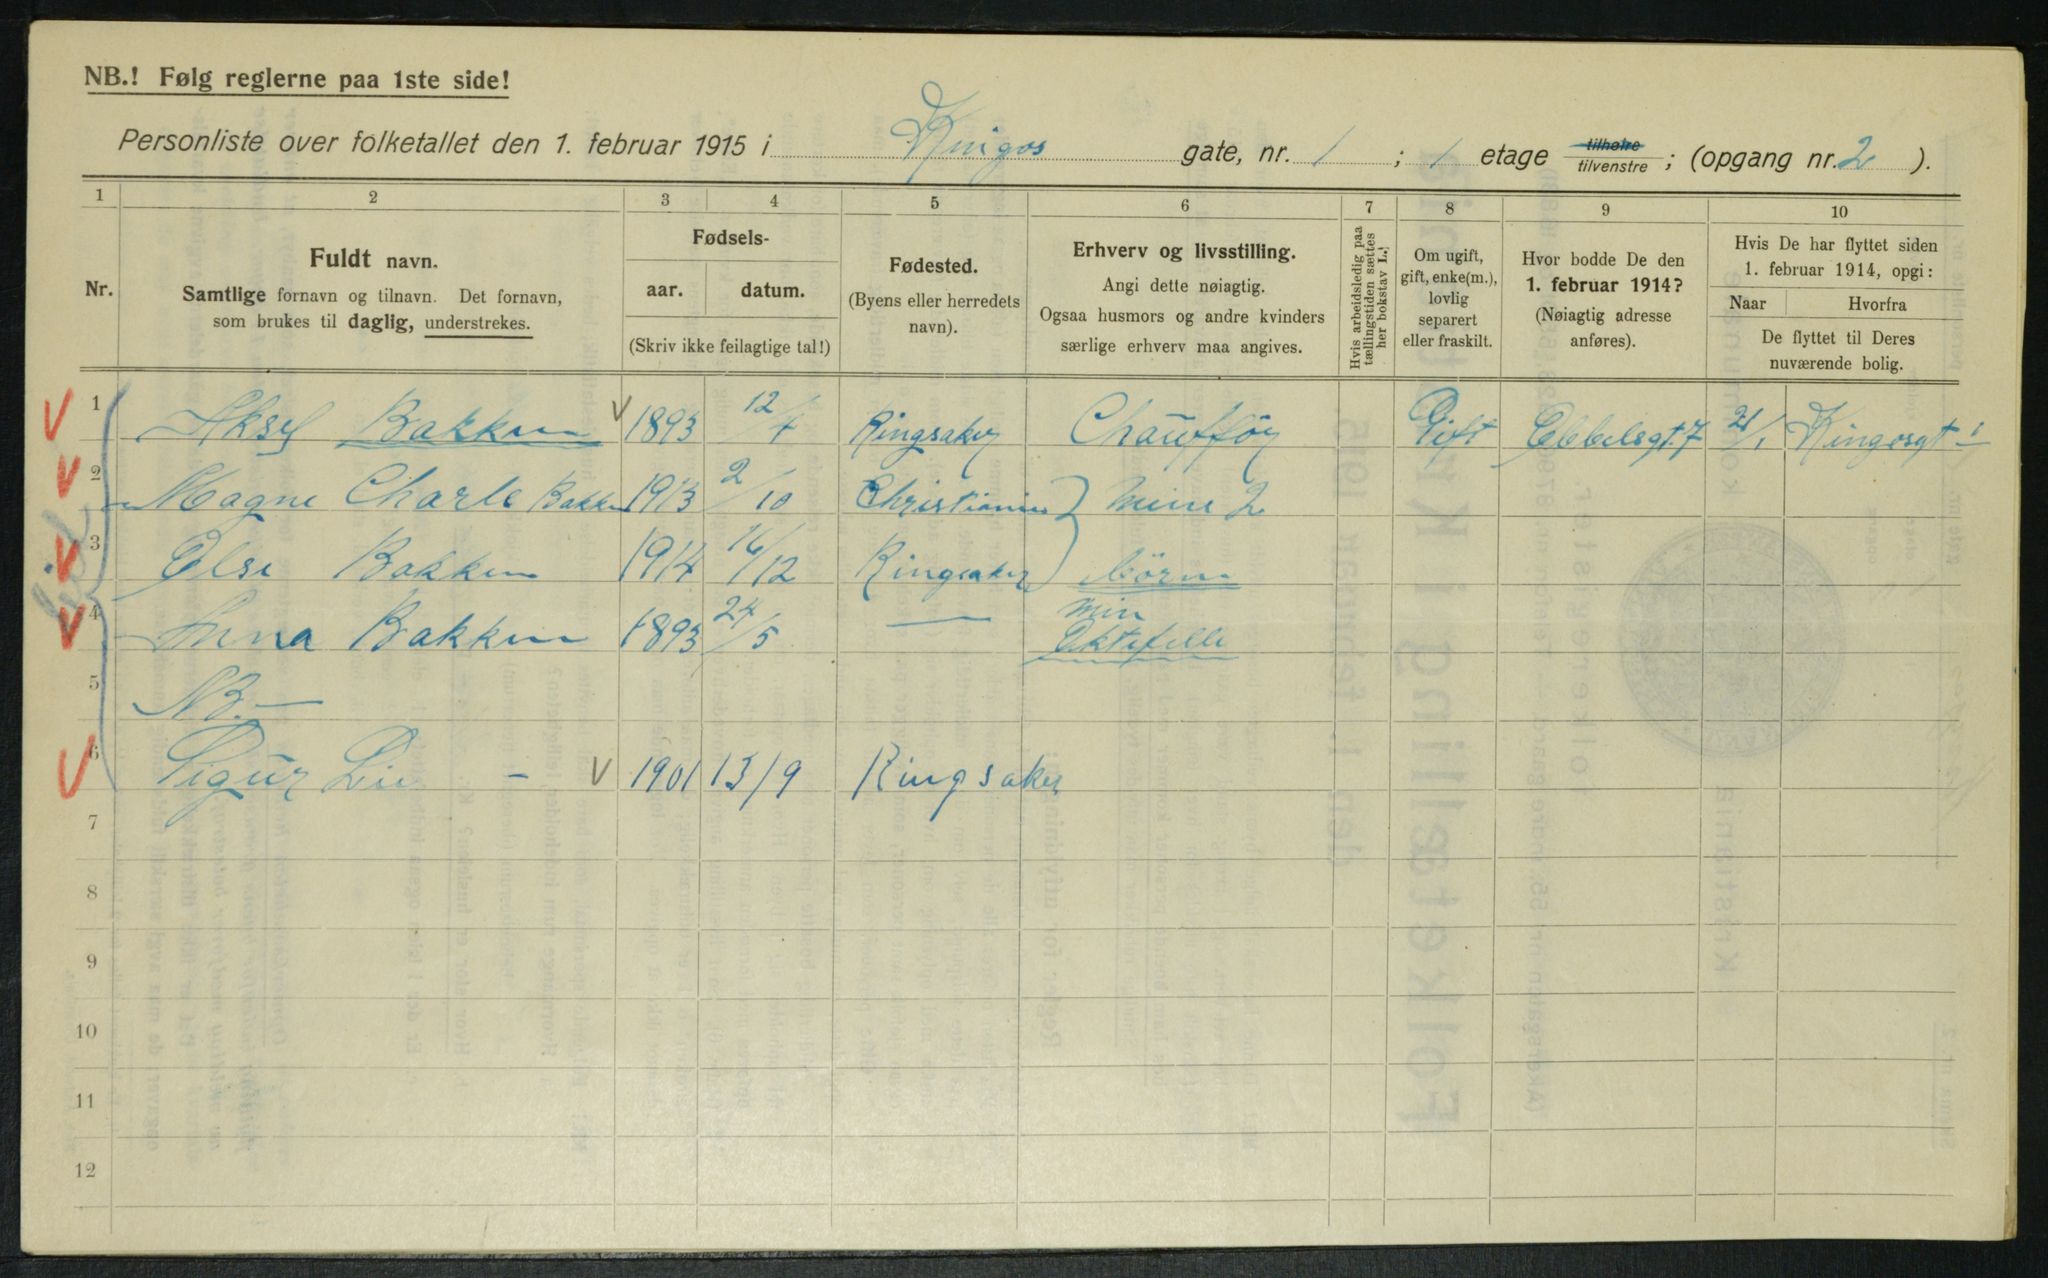 NB.! Følg reglerne paa 1ste side!
Personliste over folketallet den 1. februar 1915 i Kingos gate, nr. 1 ; 1 etage tilhøire tilvenstre ; (opgang nr. 2 ).
1 2 3 4 5 6 7 8 9 10
Nr.
Fuldt navn.
Samtlige fornavn og tilnavn. Det fornavn,
som brukes til daglig, understrekes.
Fødsels-
aar. datum.
(Skriv ikke feilagtige tal!)
Fødested.
(Byens eller herredets
navn).
Erhverv og livsstilling.
Angi dette nøiagtig.
Ogsaa husmors og andre kvinders
særlige erhverv maa angives.
Hvis arbeidsledig paa
tællingstiden sættes
her bokstav L.
Om ugift,
gift, enke(m.),
lovlig
separert
eller fraskilt.
Hvor bodde De den
1. februar 1914?
(Nøiagtig adresse
anføres).
Hvis De har flyttet siden
1. februar 1914, opgi:
Naar Hvorfra
De flyttet til Deres
nuværende bolig.
1 Aksel Bakken 1893 12/4 Ringsaker Chaufför Gift Ebbelsgt. 7 21/1 Kingosgt 1
2 Magne Charle Bakken 1913 2/10 Christiania mine 2
3 Else Bakken 1914 16/12 Ringsaker börn
4 Anna Bakken 1893 24/5 — min
Ektefelle
5 NB. —
6 Sigur Lie - 1901 13/9 Ringsaker
7
8
9
10
11
12